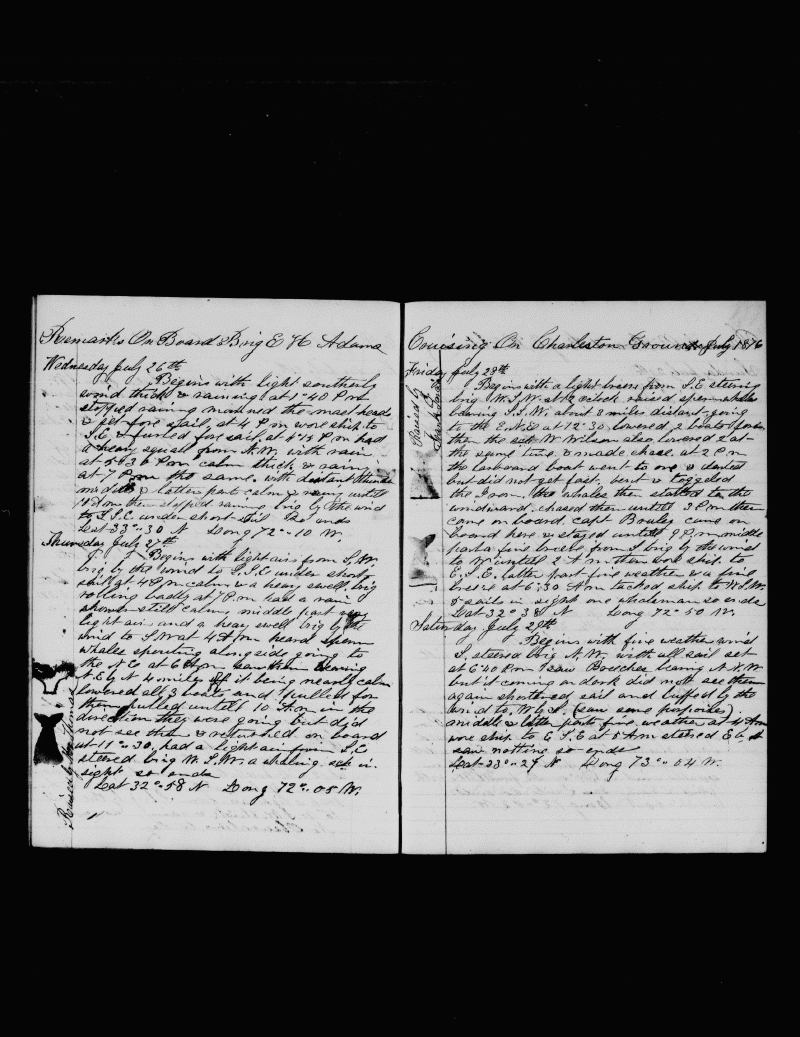 Remarks On Board Brig E H Adams
Wednesday July 26th
Begins with light southerly
wind thick & raining at 1"40 P m
stopped raining manned the mast heads
& set fore sail, at 4 P m wore ship to
S.E & furled fore sail, at 4"15 P m had
a heavy squall from N.W. with rain
at P m calm thick & rain
at 7 P m the same with distant thunder
middle & latter part calm & rain until
A m then stopped raining brig by the wind
to S.S.E under short sail So ends
Lat 33°"30 N Long 72°"10 W.
Thursday July 27th
Begins with light airs from S.W.
brig by the wind to S.S.E under short
sail at 4 P m calm & a heavy swell, brig
rolling badly at 7 P m had a rain
shower still calm, middle part
light air and a heavy swell brig by the
wind to S.W at 4 A m heard sperm
whales spouting alongside going to
the N E at 6 A m saw them bearing
N.E by N 4 miles off it being nearly calm
lowered all 3 boats and pulled for
them pulled untill 10 A m in the
direction they were going but did
not see them & returned on board
at 11"30, had a light air from S.E
steered brig W.S.W. a whaling sch in
sight so ends
Lat 32°"58 N Long 72°"05 W.
Raised by
Cruising On Charleston Grounds July 1876
Friday July 28th
Begins with a light breeze from S.E steering
brig W.S.W. at 12 oclock raised sperm whales
bearing S.S.W. about 3 miles distant going
to the E.N.E at 12"30 lowered 2 boats for
them the sch W Wilson also lowered 2 at
the same time & made chase, at 2 P m
the larboard boat went to one & darted
but did not get fast, bent & toggled
the Iron, the whales then started to the
windward, chased them untill 3 P m then
came on board capt came on
board here & stayed untill 9 P m, middle
part a fine breeze from S brig by the wind
to W untill 2 A m then wore ship to
E.S.E. latter part fine weather & a fine
breeze at 6"30 A m tacked ship to W.S.W.
5 sails in sight one whaleman so ends
Lat 32°"38 N Long 72°"50 W.
Raised by
Saturday July 29th
Begins with fine weather wind
S, steered brig N.W. with all sail set
at 6"40 P m saw Breaches bearing N.N.W
but it coming on dark did nott see them
again shortened sail and luffed by the
wind to W by S. (saw some porpoises)
middle & latter parts fine weather at 4 A m
wore ship to E S.E at 8 A m steered E by
saw nothing so ends
Lat 33°"27 N Long 73°"04 W.